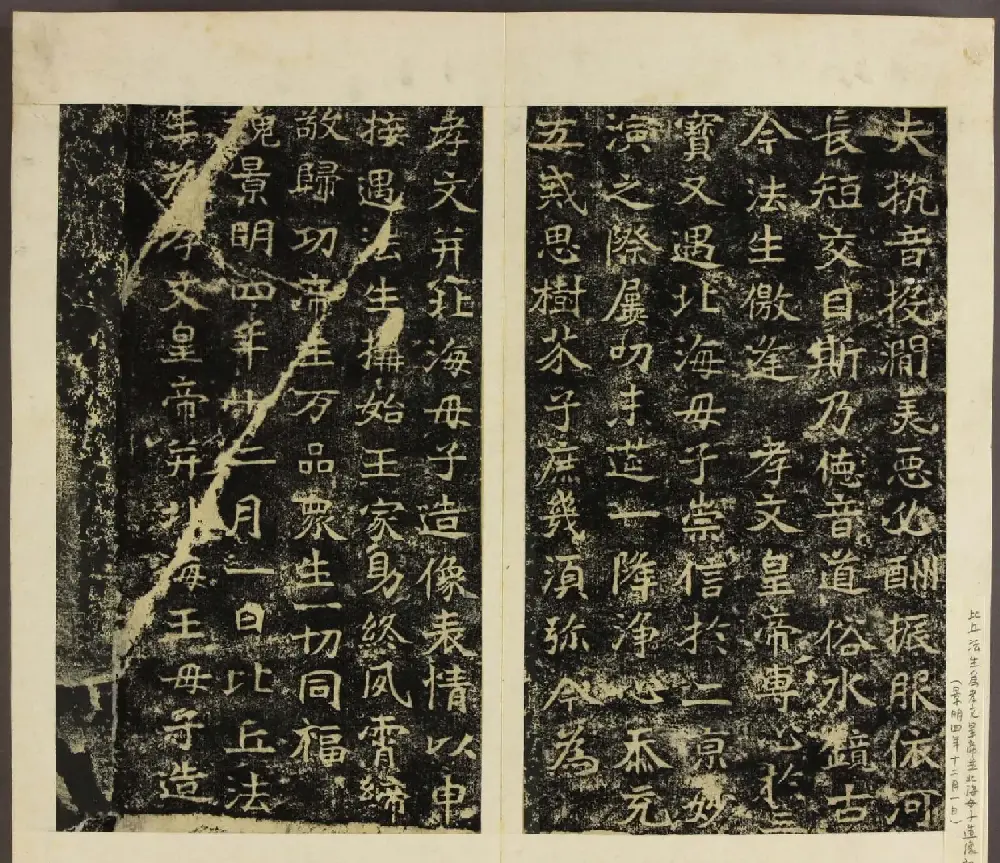 夫抗音投澗美惡必酬振服依河
長短交目斯乃德音道俗水鏡古
今法生儌逢 孝文皇帝專心於三
寶又遇北海母子崇信於二京妙
演之際屢叨末莚一降淨心忝充
五戒思樹芥子庶幾須弥今為
孝文并北海母子造像表情以申
接遇法生構始王家助終夙霄締
敬歸功帝王万品眾生一切同福
魏景明四年十二月一日比丘法
生為孝文皇帝并北海王母子造
比丘法生為孝文皇帝並北海母子造像
(景明四年十二月一日)